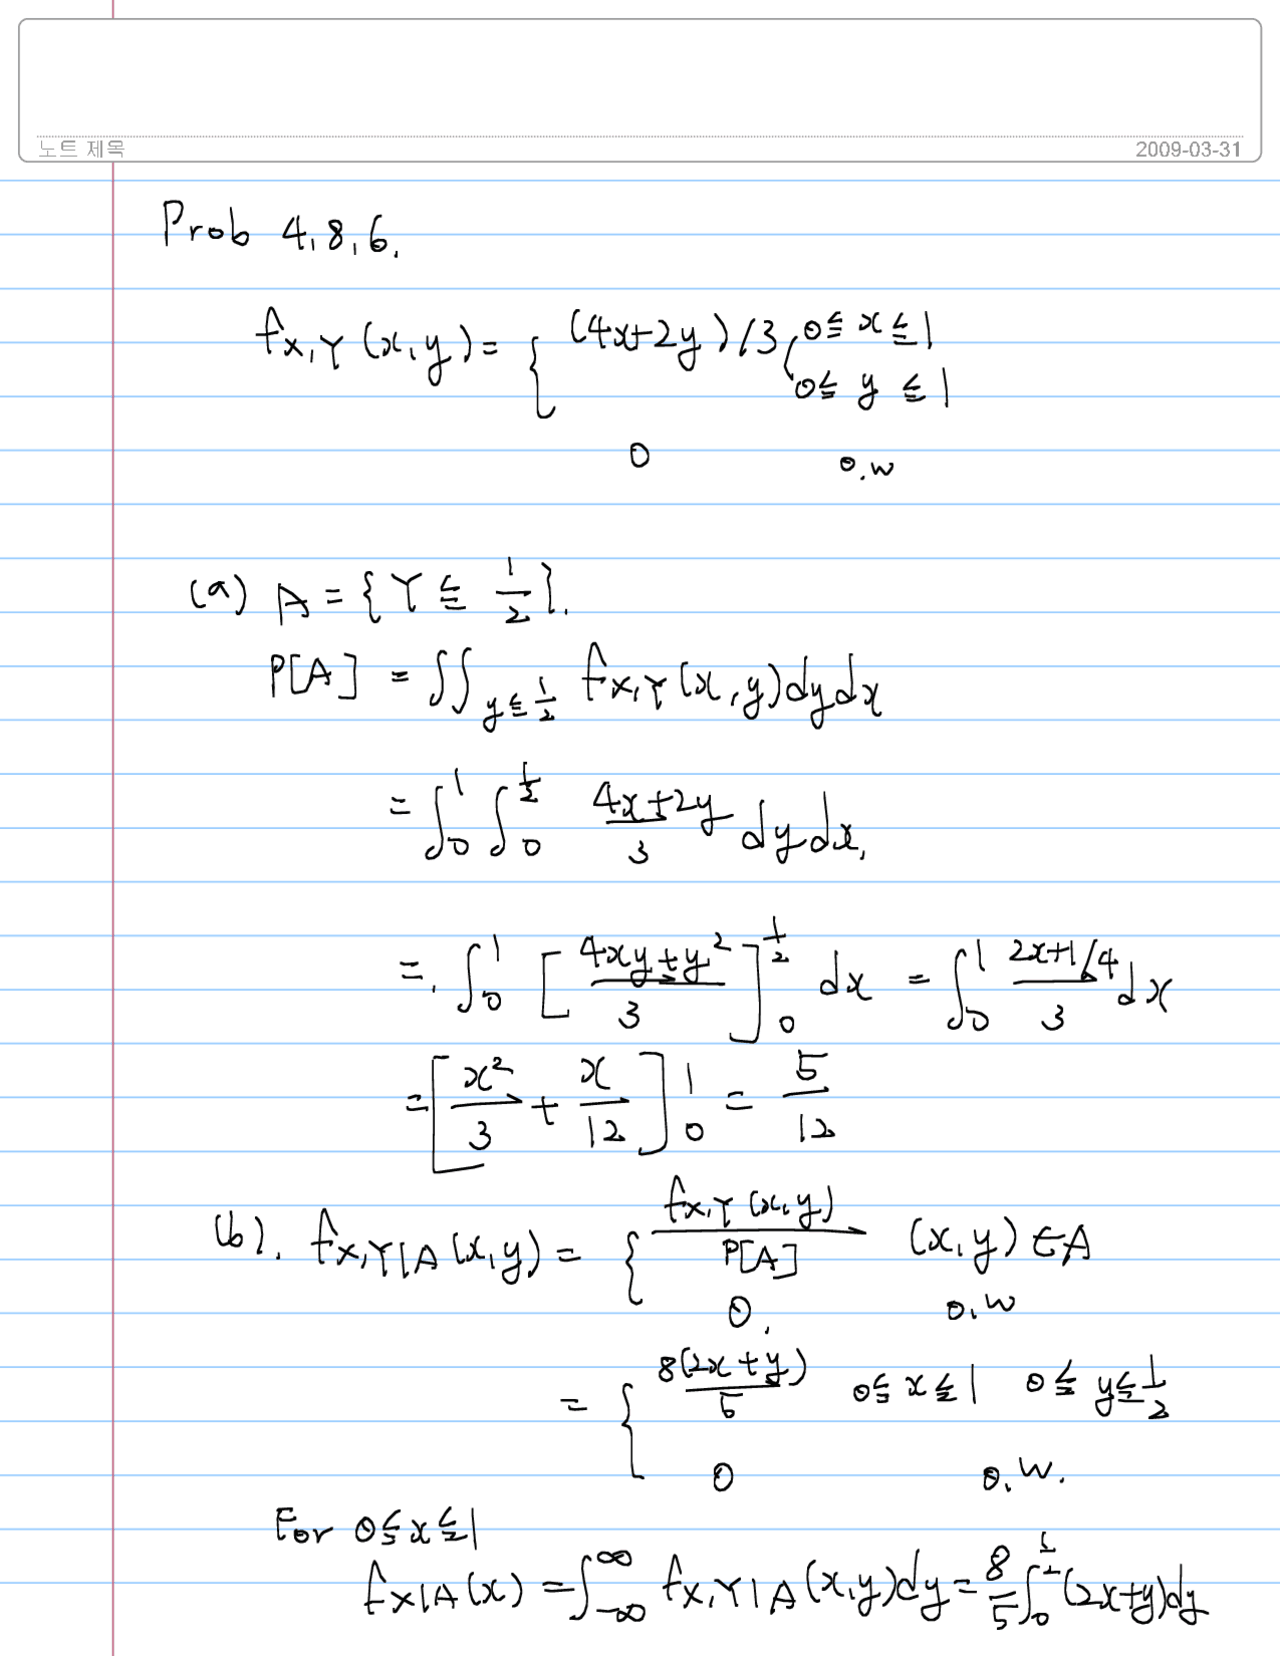 노트 제목 2009-03-31
Prob 4,8,6.
f_{X,Y}(x,y) = { (4x+2y)/3, 0≦x≦1
0≦ y ≦1
0 o.w
(a) A = { Y ≦ 1/2 }.
P[A] = ∬_{y≦1/2} f_{X,Y}(x,y)dydx
= ∫_0^1 ∫_0^{1/2} (4x+2y)/3 dydx,
=. ∫_0^1 [ (4xy+y^2)/3 ]_0^{1/2} dx = ∫_0^1 (2x+1/4)/3 dx
= [ x^2/3 + x/12 ]_0^1 = 5/12
(b). f_{X,Y|A}(x,y) = { f_{X,Y}(x,y)/P[A] (x,y) ∈ A
0. o.w
= { 8(2x+y)/5 0≦x≦1 0≦ y≦1/2
0 o.w.
For 0≦x≦1
f_{X|A}(x) = ∫_{-∞}^{∞} f_{X,Y|A}(x,y)dy = 8/5 ∫_0^{1/2} (2x+y)dy